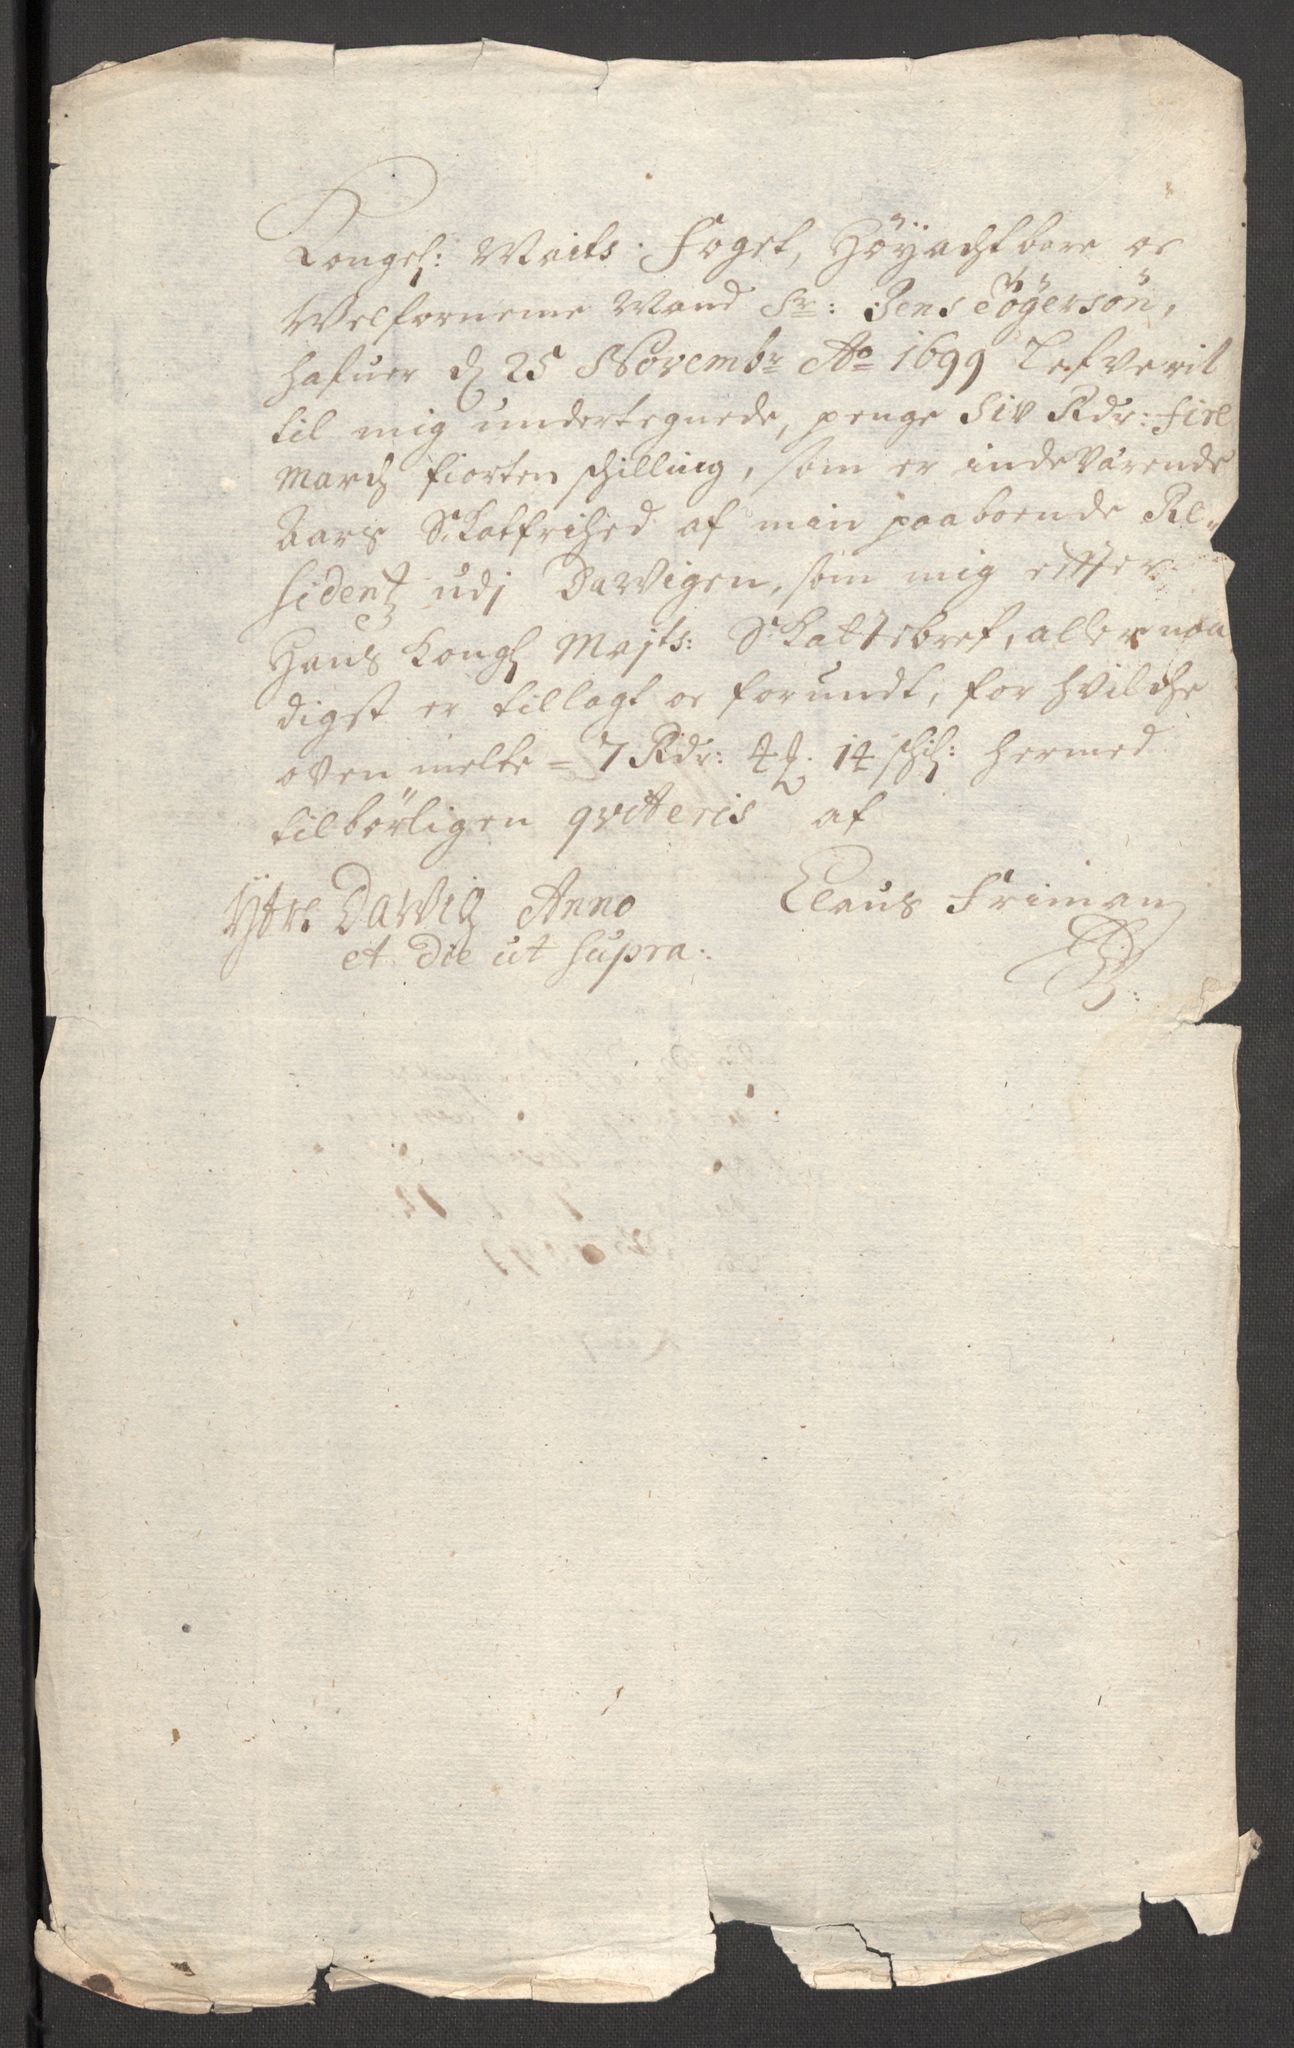 Kongel: Maits. Foget, Höyachtbare oc
Welforneme Mand Sr: Jens Tögersön,
hafuer d 25 Novembr Ao 1699 Lefverit
til mig undertegnede, penge Siv Rdr: fire
March fiorten schilling, som er indeværende
Aars Skatfrihed af min paaboende Re-
sidentz udj Davvigen, som mig effter
Hans Kongl Majts: Skattebref, allernaa
digst er tillagt oc forundt, for hvilche
oven melte = 7 Rdr: 4 ȝ. 14 schil: hermed
tilbörligen qvitteris af
Ytre Davvig Anno Claus Friman
et die ut supra.